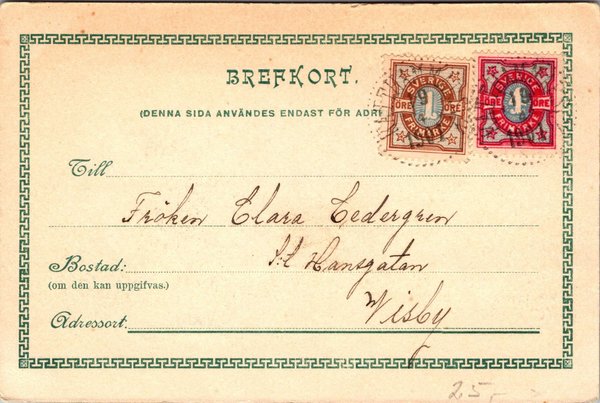 BREFKORT.
(DENNA SIDA ANVÄNDES ENDAST FÖR ADR
SVERIGE
ÖRE 1 ÖRE
FRIMÄRKE
SVERIGE
ÖRE ÖRE
FRIMÄRKE
Till
Fröken Clara Cedergren
S:t Hansgatan
Bostad:
(om den kan uppgifvas.)
Wisby
Adressort.
25,-